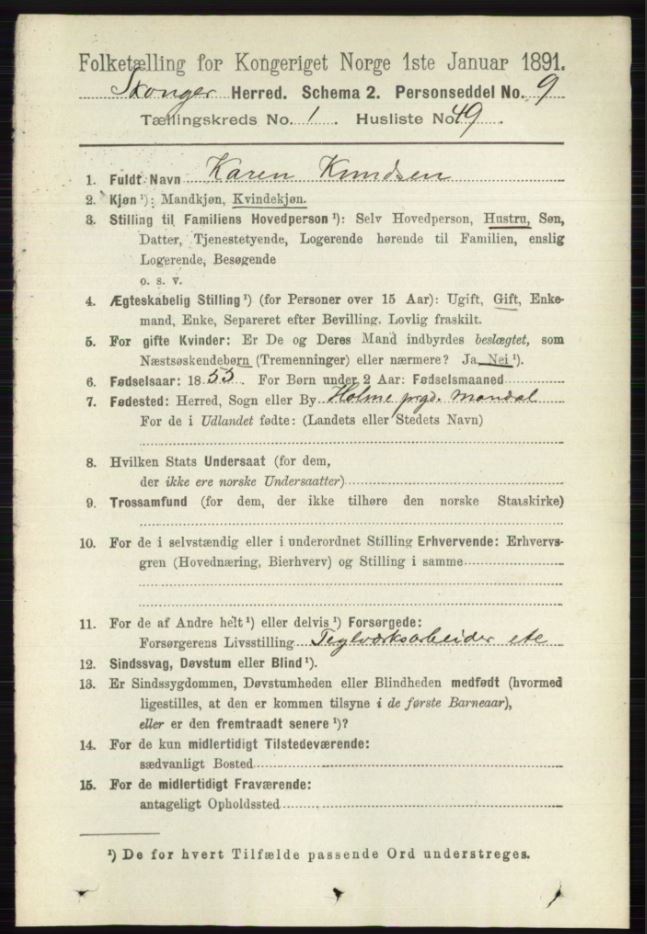 Folketælling for Kongeriget Norge 1ste Januar 1891.
Skouger Herred. Schema 2. Personseddel No. 9
Tællingskreds No. 1. Husliste No. 49.
1. Fuldt Navn Karen Knudsen
2. Kjøn¹): Mandkjøn, Kvindekjøn.
3. Stilling til Familiens Hovedperson¹): Selv Hovedperson, Hustru, Søn,
Datter, Tjenestetyende, Logerende hørende til Familien, enslig
Logerende, Besøgende
o. s. v.
4. Ægteskabelig Stilling¹) (for Personer over 15 Aar): Ugift, Gift, Enke-
mand, Enke, Separeret efter Bevilling. Lovlig fraskilt.
5. For gifte Kvinder: Er De og Deres Mand indbyrdes beslægtet, som
Næstsøskendebørn (Tremenninger) eller nærmere? Ja, Nei¹).
6. Fødselsaar: 1853. For Børn under 2 Aar: Fødselsmaaned
7. Fødested: Herred, Sogn eller By Holme prgd. Mandal
For de i Udlandet fødte: (Landets eller Stedets Navn)
8. Hvilken Stats Undersaat (for dem,
der ikke ere norske Undersaatter)
9. Trossamfund (for dem, der ikke tilhøre den norske Statskirke)
10. For de i selvstændig eller i underordnet Stilling Erhvervende: Erhvervs-
gren (Hovednæring, Bierhverv) og Stilling i samme
11. For de af Andre helt¹) eller delvis¹) Forsørgede:
Forsørgerens Livsstilling Teglværksarbeider etc
12. Sindssvag, Døvstum eller Blind¹).
13. Er Sindssygdommen, Døvstumheden eller Blindheden medfødt (hvormed
ligestilles, at den er kommen tilsyne i de første Barneaar),
eller er den fremtraadt senere¹)?
14. For de kun midlertidigt Tilstedeværende:
sædvanligt Bosted
15. For de midlertidigt Fraværende:
antageligt Opholdssted
¹) De for hvert Tilfælde passende Ord understreges.